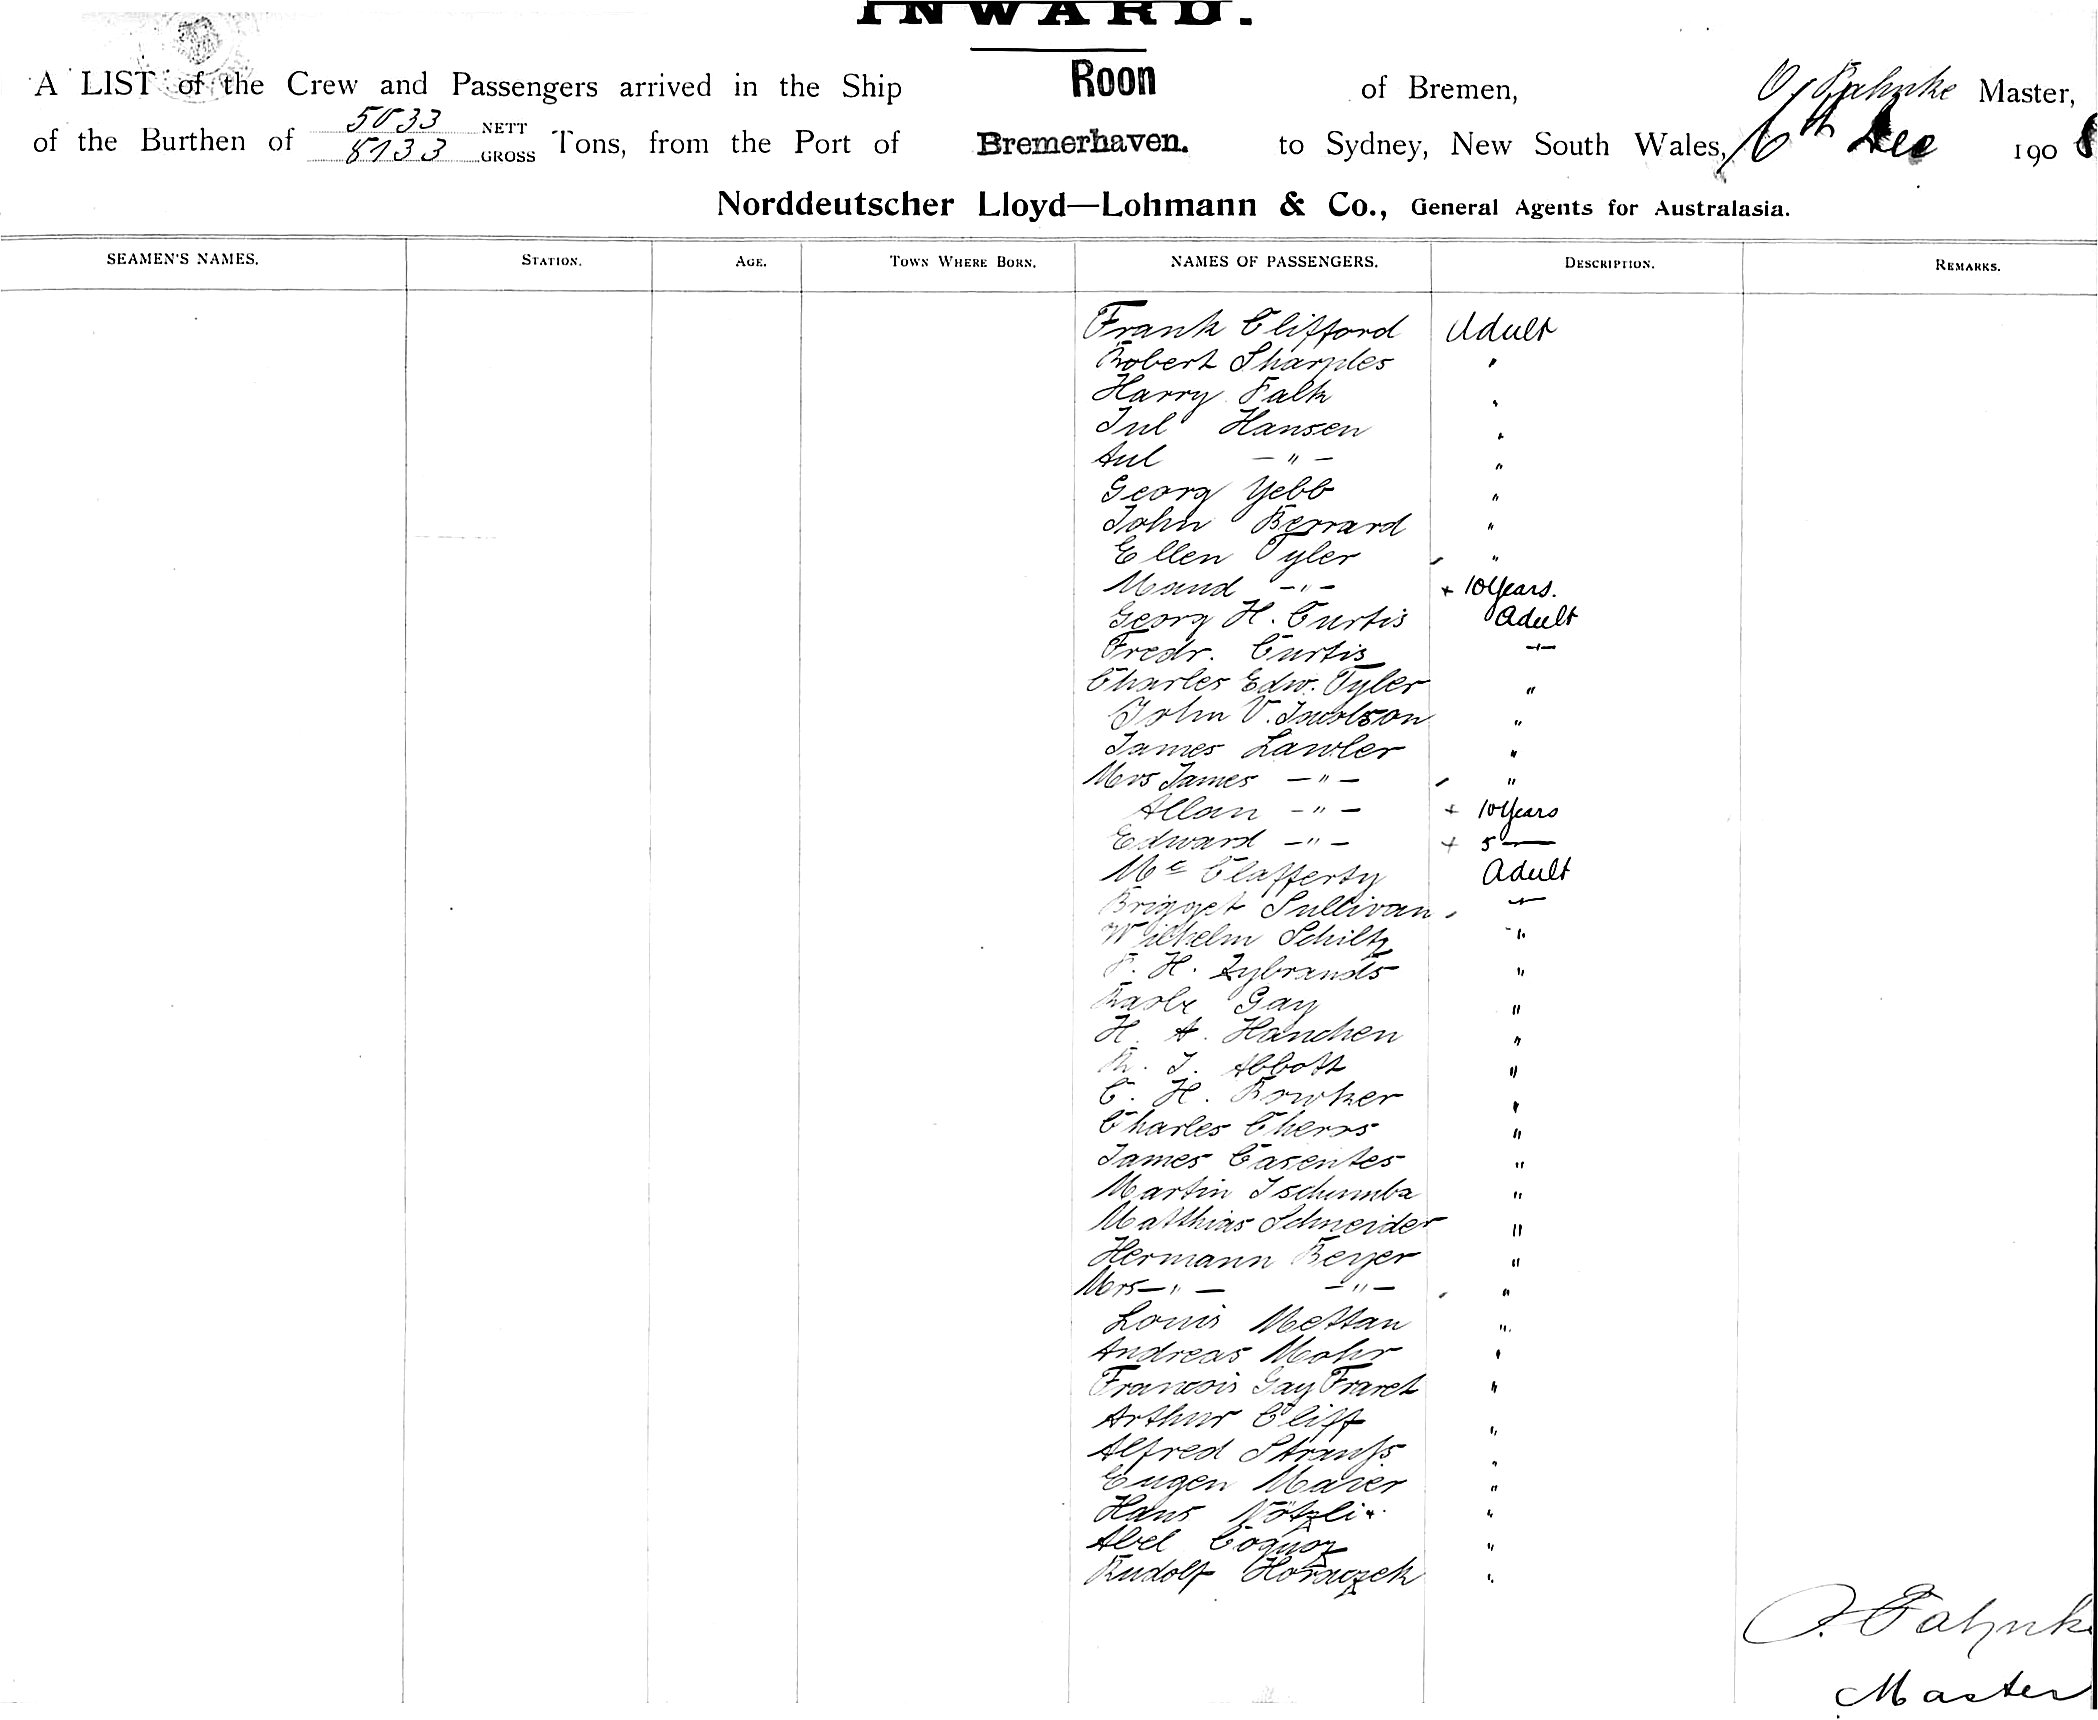 INWARD.
A LIST of the Crew and Passengers arrived in the Ship Roon of Bremen, O. Pahnke Master,
of the Burthen of 5033 NETT 8133 GROSS Tons, from the Port of Bremerhaven. to Sydney, New South Wales, 6th Dec 1908
Norddeutscher Lloyd—Lohmann & Co., General Agents for Australasia.
SEAMEN'S NAMES. STATION. AGE. TOWN WHERE BORN. NAMES OF PASSENGERS. DESCRIPTION. REMARKS.
Frank Clifford Adult
Robert Sharples "
Harry Falk "
Jul Hansen "
Aul —"— "
Georg Yebb "
John Berrard "
Ellen Tyler "
Maud —"— + 10 Years.
Georg H. Curtis Adult
Fredr. Curtis —"—
Charles Edw. Tyler "
John V. "
James Lawler "
Mrs James —"— "
Allan —"— + 10 Years
Edward —"— + 5 —
Mc Clafferty Adult
Brigget Sullivan —"—
Wilhelm Schiltz "
F. H. Zybrands "
Gay "
H. A. Hanchen "
R. J. Abbott "
C. H. Bowker "
Charles Cherrs "
James Casentes "
Martin Tschumba "
Matthias Schneider "
Hermann Beyer "
Mrs —"— —"— "
Louis Mettan "
Andreas Mohr "
Francois Gay Fraret "
Arthur Cliff "
Alfred Strauß "
Eugen Maier "
Hans Nötzli "
Abel Coquoz "
Rudolf Horaczek "
O. Pahnke
Master